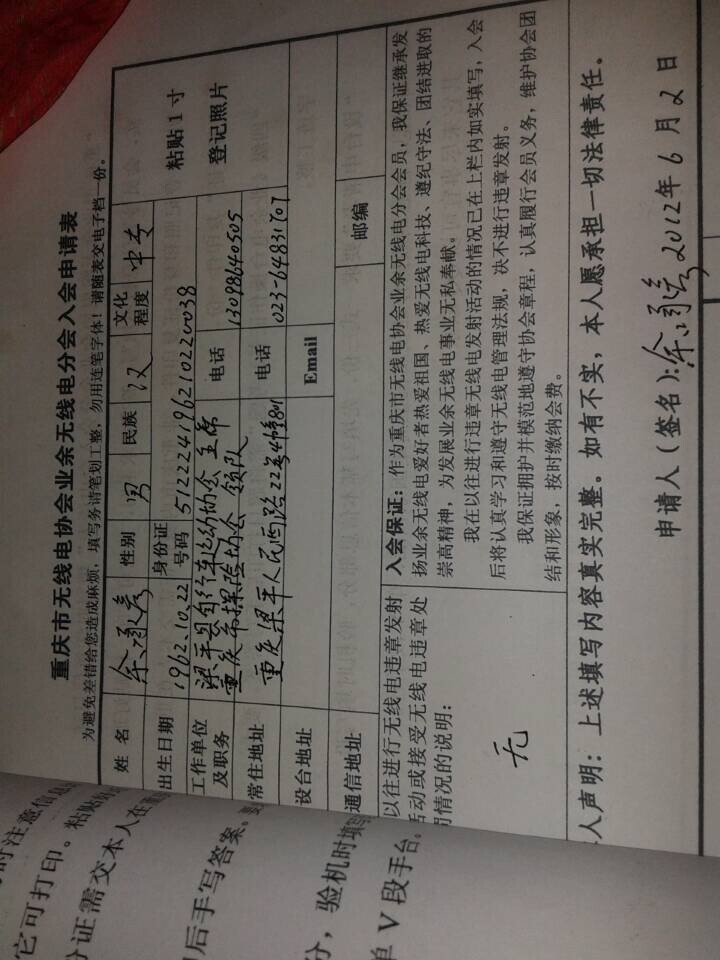 重庆市无线电协会业余无线电分会入会申请表
为避免差错给您造成麻烦，填写务请笔划工整，勿用连笔字体！请随表交电子档一份。
姓 名
性别 男 民族 汉 文化程度 中专
粘贴1寸
登记照片
出生日期 1962.10.22 身份证号码 512224196210220038
工作单位及职务 梁平县自行车运动协会 主席
重庆市探险协会 领队
电话 13098640505
常住地址 重庆梁平人民西路22号4幢801
电话 023-64831707
设台地址 Email
通信地址 邮编
以往进行无线电违章发射
活动或接受无线电违章处
情况的说明：
无
入会保证：作为重庆市无线电协会业余无线电分会会员，我保证继承发
扬业余无线电爱好者热爱祖国、热爱无线电科技、遵纪守法、团结进取的
崇高精神，为发展业余无线电事业无私奉献。
我在以往进行违章无线电发射活动的情况已在上栏内如实填写，入会
后将认真学习和遵守无线电管理法规，决不进行违章发射。
我保证拥护并模范地遵守协会章程，认真履行会员义务，维护协会团
结和形象，按时缴纳会费。
人声明：上述填写内容真实完整。如有不实，本人愿承担一切法律责任。
申请人（签名）：
2012年6月2日
时注意信息
它可打印。粘贴
分证需交本人在
后手写答案。
分，验机时填写
单V段手台。